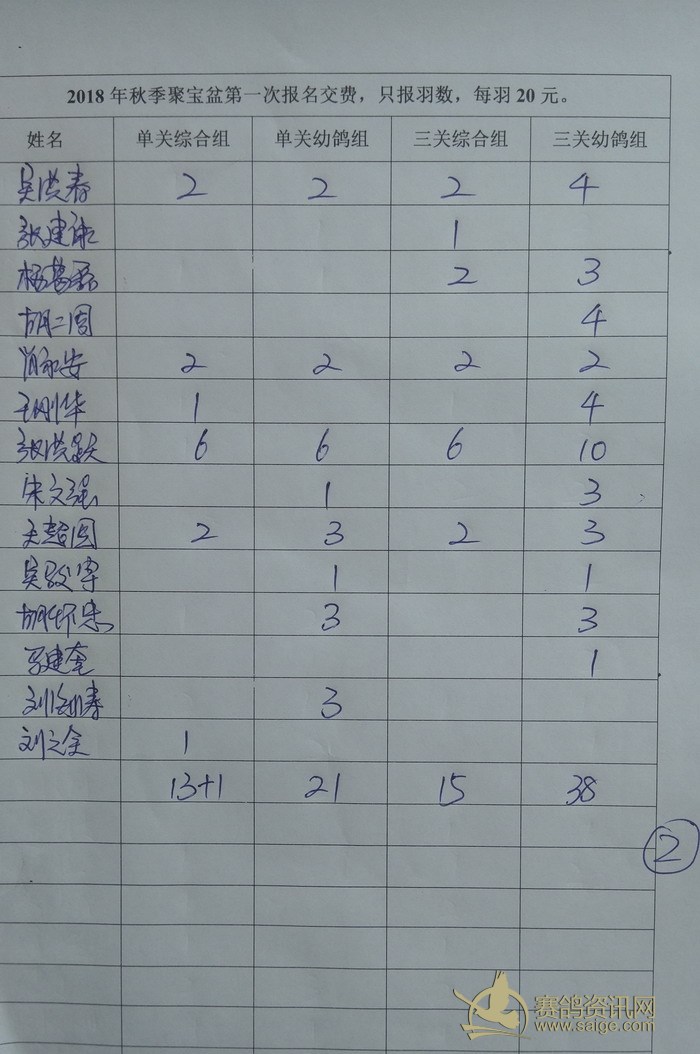 2018年秋季聚宝盆第一次报名交费，只报羽数，每羽20元。
姓名 单关综合组 单关幼鸽组 三关综合组 三关幼鸽组
吴洪春 2 2 2 4
张建 1
杨 2 3
胡二周 4
肖永安 2 2 2 2
王刚华 1 4
张洪跃 6 6 6 10
宋文强 1 3
王超图 2 3 2 3
吴 1 1
胡怀忠 3 3
马建奎 1
刘春 3
刘文全 1
13+1 21 15 38
2
赛鸽资讯网
www.saige.com